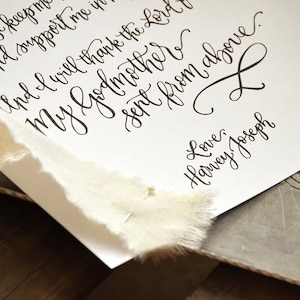 keep me
and support me in m
And I will thank the Lord f
My Godmother
sent from above.
Love,
Harvey Joseph